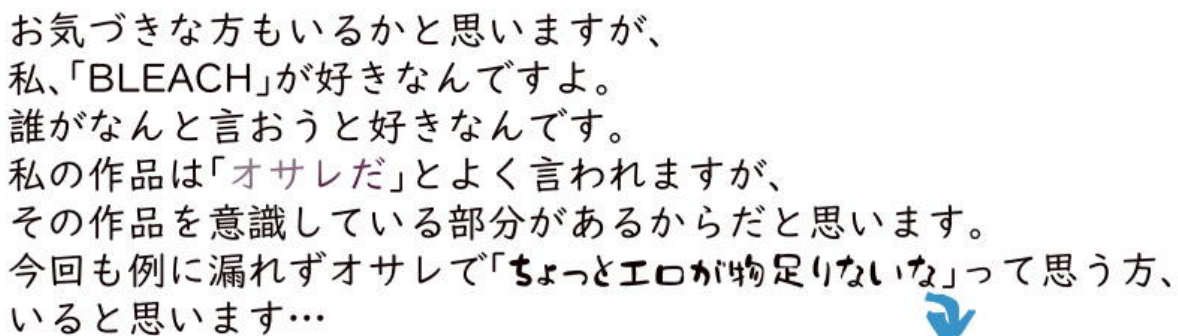 お気づきな方もいるかと思いますが、
私、「BLEACH」が好きなんですよ。
誰がなんと言おうと好きなんです。
私の作品は「オサレだ」とよく言われますが、
その作品を意識している部分があるからだと思います。
今回も例に漏れずオサレで「ちょっとエロが物足りないな」って思う方、
いると思います…